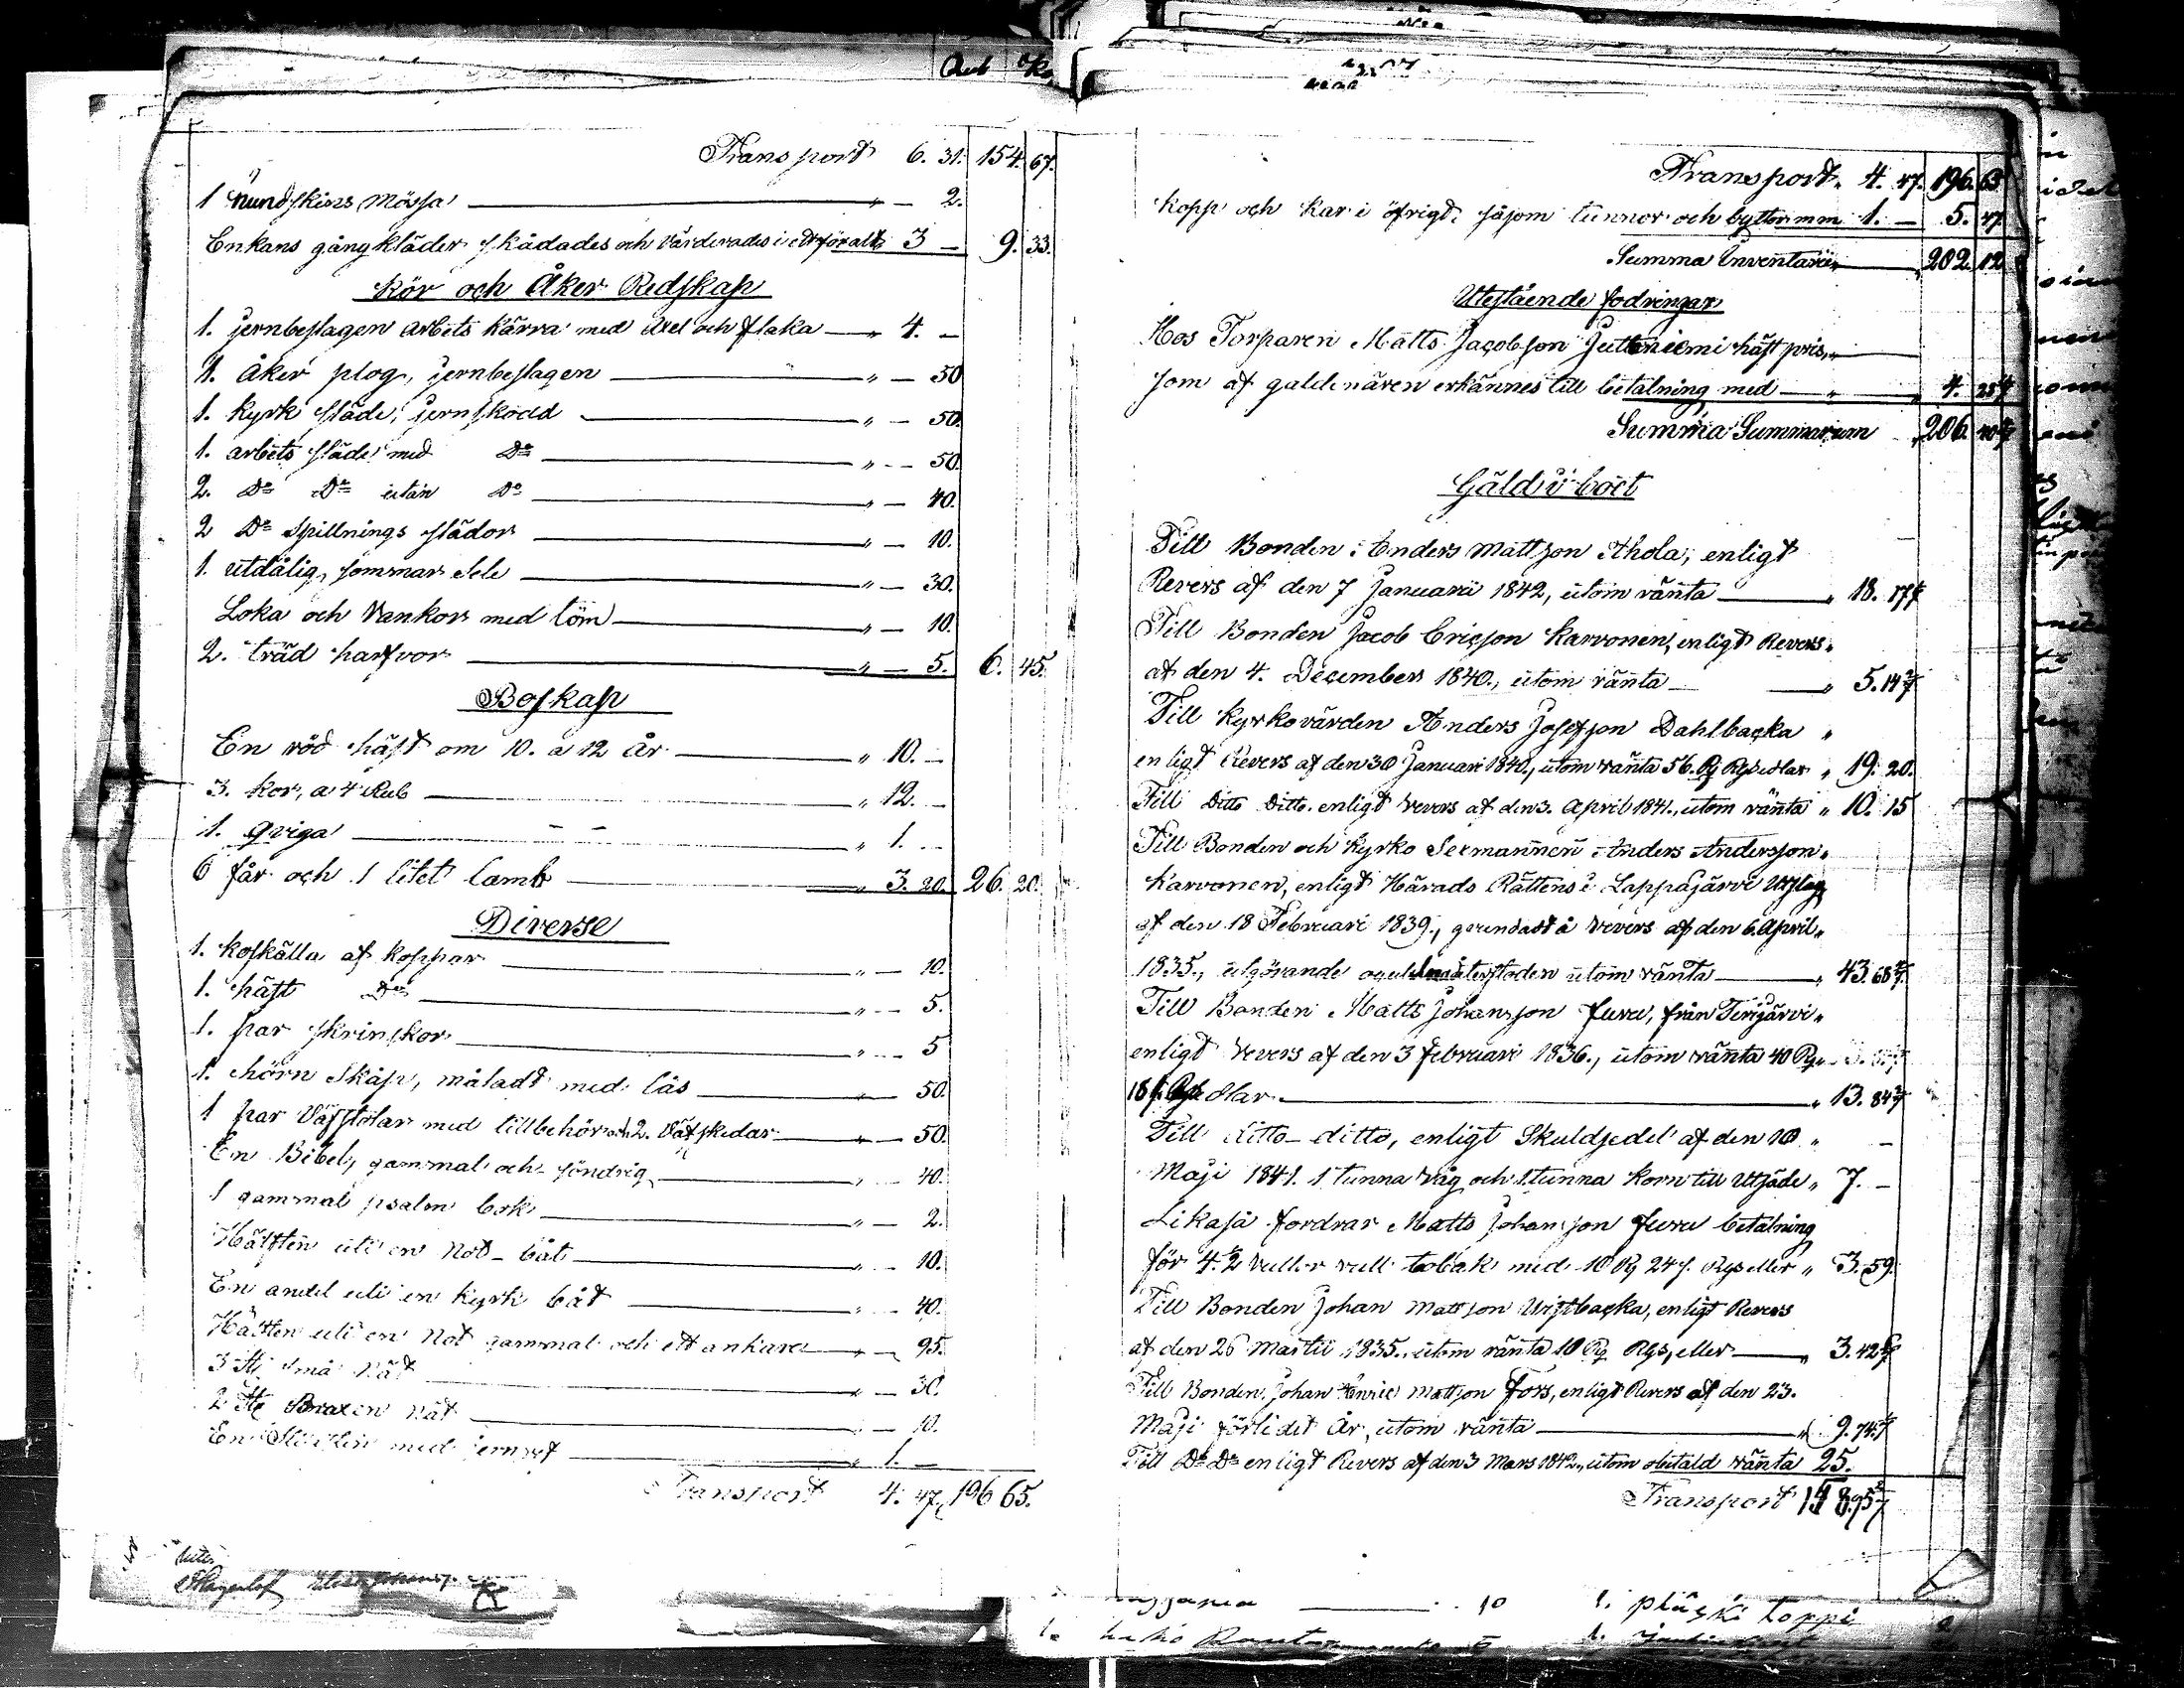 Rub Ko
Transport 6. 31. 154. 67.
1 hundskins mössa " — 2.
Enkans gångkläder skådades och värderades i ett för allt 3 — 9. 33.
Kör och Åker Redskap
1. jernbeslagen arbets kärra med axel och flaka " 4. —
1. åker plog, jernbeslagen " — 50
1. kyrk släde, jernskodd " — 50.
1. arbets släde med Do " — 50.
2. Do Do utan Do " — 40.
2 Do Spillnings slädor " — 10.
1. utdålig, sommar sele " — 30.
Loka och Vankor med töm " — 10.
2. träd harfvor " — 5. 6. 45.
Boskap
En röd häst om 10. a 12 år " 10. —
3. kor, a 4 Rub " 12. —
1. qviga " 1. —
6 får och 1 litet lamb " 3. 20. 26. 20.
Diverse
1. koskälla af koppar " — 10.
1. häst Do " — 5.
1. par skrinskor " — 5
1. hörn skåp, måladt med lås " — 50.
1 par Väfstolar med tillbehör och 2. Väfskedar " — 50.
En Bibel, gammal och söndrig " — 40.
1 gammal psalm bok " — 2.
Hälften uti en Not-båt " — 10.
En andel uti en kyrk båt " — 40.
Hälften uti en Not gammal och ett ankare " — 95.
3 st. små Nät " — 30.
2 st. Braxen nät " — 10.
En med jernrör " 1. —
Transport 4. 47. 196 65.
Transport. 4. 47. 196. 65
Kopp och kar i öfrigt, såsom tunnor och byttor m m 1. — 5. 47
Summa Inventarii 202. 12
Utestående fodringar
Hos Torparen Matts Jacobsson Juttuniemi häst pris,
som af galdenären erkännes till betalning med " 4. 28 4/7
Summa Summarum 206. 40 4/7
Gäld i boet
Till Bonden Anders Mattsson Ahola, enligt
Revers af den 7 Januarii 1842, utom ränta " 18. 17 1/7
Till Bonden Jacob Ericsson Karvonen, enligt Revers
af den 4. December 1840., utom ränta " 5. 14 2/7
Till Kyrkovärden Anders Josefsson Dahlbacka "
enligt Revers af den 30 Januari 1840., utom ränta 56. Rg Rgs eller " 19. 20.
Till Ditto Ditto. enligt revers af den 3. April 1841., utom ränta " 10. 15
Till Bonden och Kyrko Sexmannen Anders Andersson
Karvonen, enligt Härads Rättens i Lappajärvi Utslag
af den 18 Februari 1839., grundadt å revers af den 6. April
1835., utgörande oguldna återstoden utom ränta " 43. 68 4/7
Till Bonden Matts Johansson Furu, från Terijärvi
enligt revers af den 3 februari 1836., utom ränta 40 Rg
18 f. Rgs eller " 13. 84 2/7
Till ditto ditto, enligt Skuldsedel af den 10 "
Maji 1841. 1 tunna råg och 1 tunna korn till utsäde " 7. —
Likaså fordrar Matts Johansson Furu betalning
för 4 1/2 rullor rull tobak med 10 Rg 24 f. Rgs eller " 3. 59.
Till Bonden Johan Mattsson Wistbacka, enligt Revers
af den 26 Martii 1835. utom ränta 10 Rg Rgs, eller " 3. 42 6/7
Till Bonden Johan Henric Mattsson Fors, enligt Revers af den 23.
Maji förlidet År, utom ränta " 9. 74 2/7
Till Do Do enligt Revers af den 3 Mars 1842., utom obetald ränta 25.
Transport 158. 95
10
1. plåski toppi